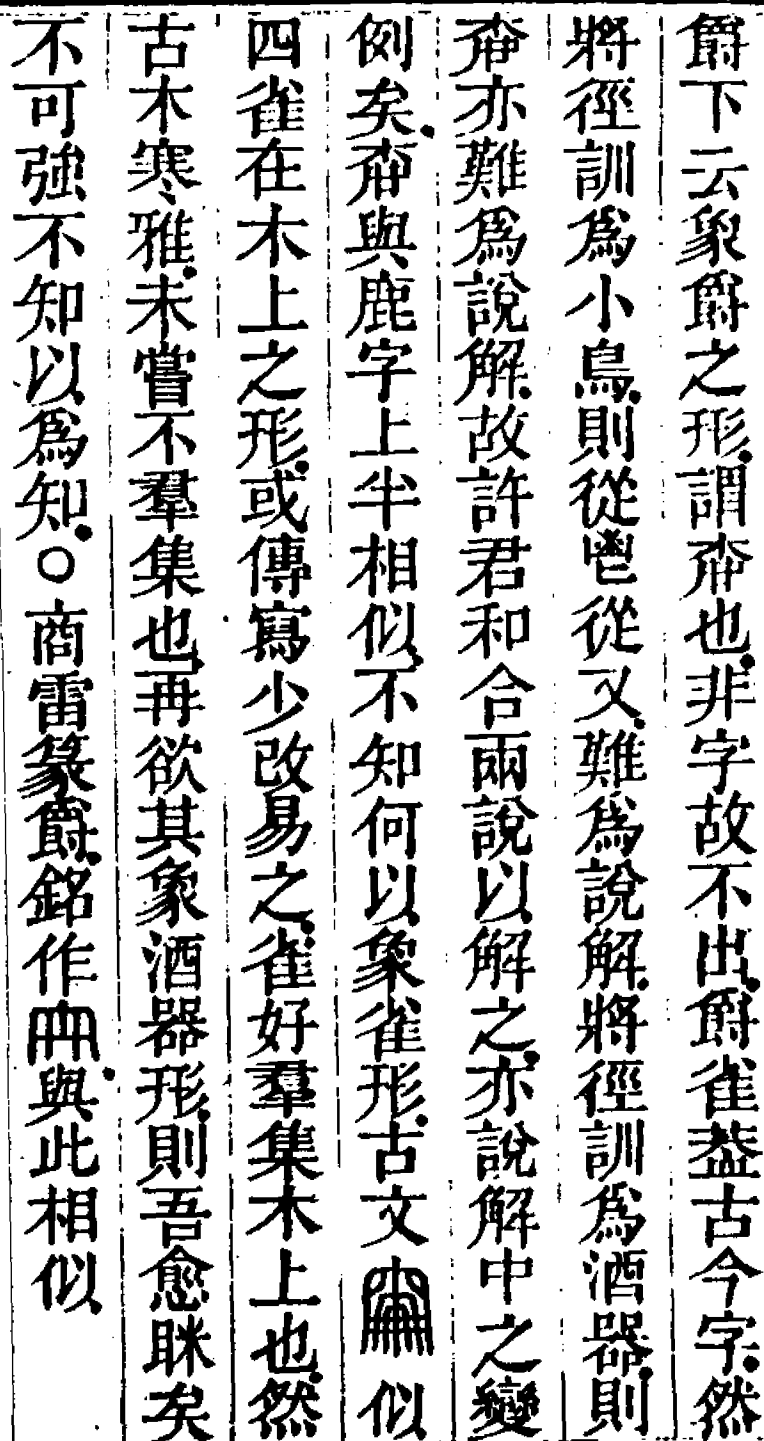 爵下云象爵之形。謂也。非字故不出。爵雀葢古今字。然
將徑訓爲小鳥。則從鬯從又。難爲說解。將徑訓爲酒器。則
亦難爲說解。故許君和合兩說以解之。亦說解中之變
例矣。與鹿字上半相似。不知何以象雀形。古文似
四雀在木上之形。或傳寫少改易之。雀好羣集木上也。然
古木寒雅。未嘗不羣集也。再欲其象酒器形。則吾愈眯矣
不可強不知以爲知。○商雷篆爵。銘作與此相似。